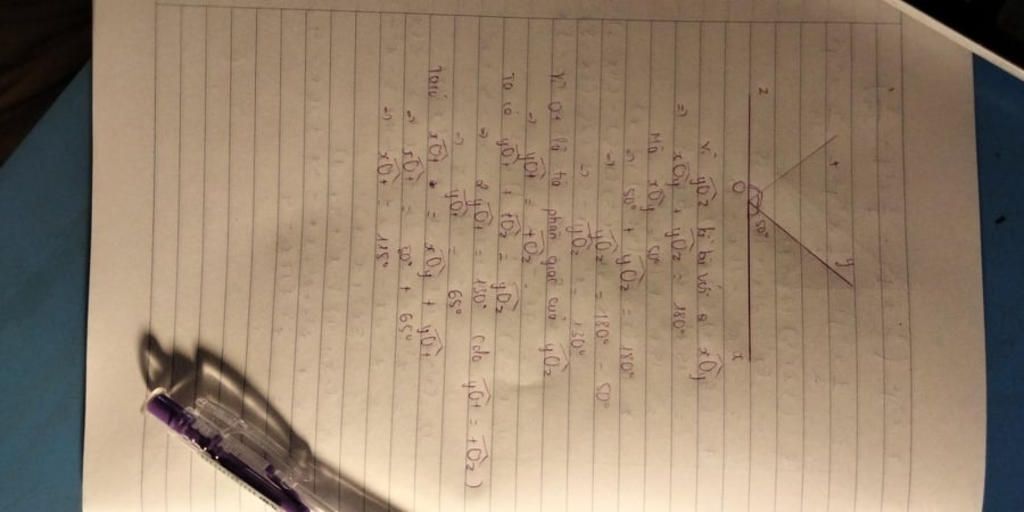 z O x
t
y
50°
Vì yOz kề bù với xOy
=> xOy + yOz = 180°
Mà xOy = 50°
=> 50° + yOz = 180°
=> yOz = 180° - 50°
=> yOz = 130°
Vì Ot là tia phân giác của yOz
=> yOt = tOz
Ta có yOt + tOz = yOz
=> 2yOt = 130° (do yOt = tOz)
=> yOt = 65°
Ta có xOt = xOy + yOt
=> xOt = 50° + 65°
=> xOt = 115°